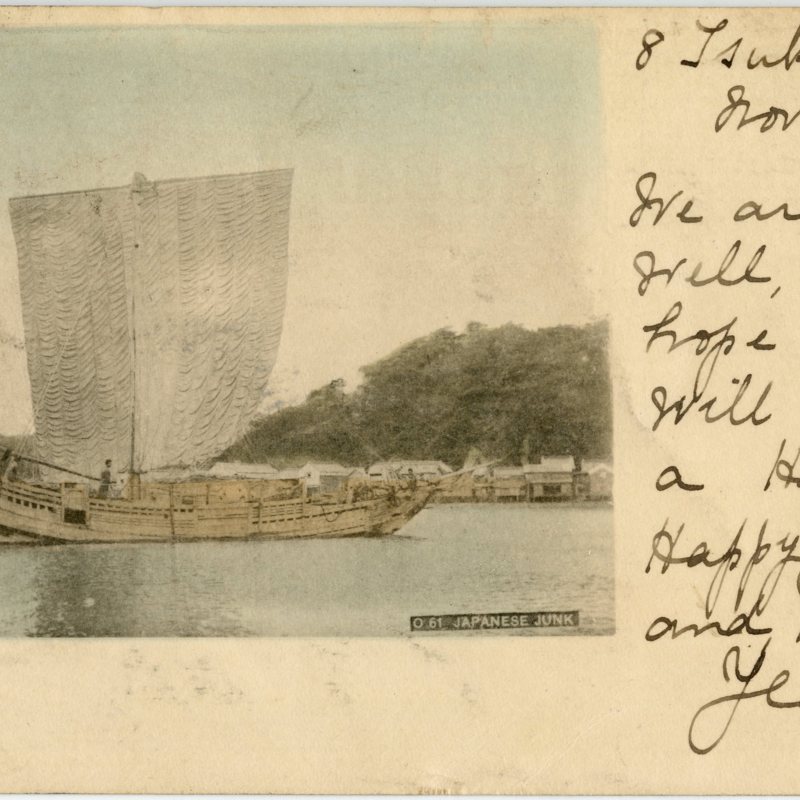 O 61 JAPANESE JUNK
8 Tsuk
Nov
We ar
Well,
hope
Will
a H
Happy
and
Ye